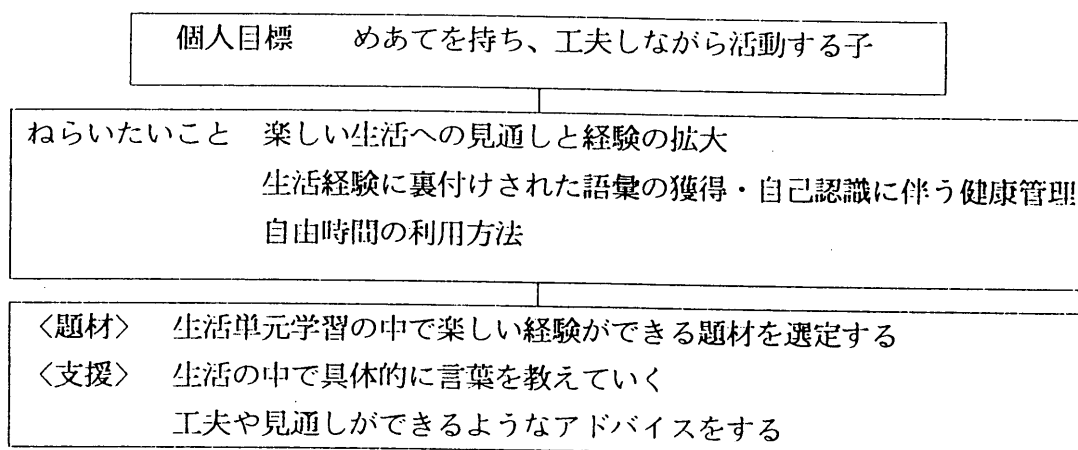 個人目標　めあてを持ち、工夫しながら活動する子
ねらいたいこと　楽しい生活への見通しと経験の拡大
生活経験に裏付けされた語彙の獲得・自己認識に伴う健康管理
自由時間の利用方法
〈題材〉　生活単元学習の中で楽しい経験ができる題材を選定する
〈支援〉　生活の中で具体的に言葉を教えていく
工夫や見通しができるようなアドバイスをする